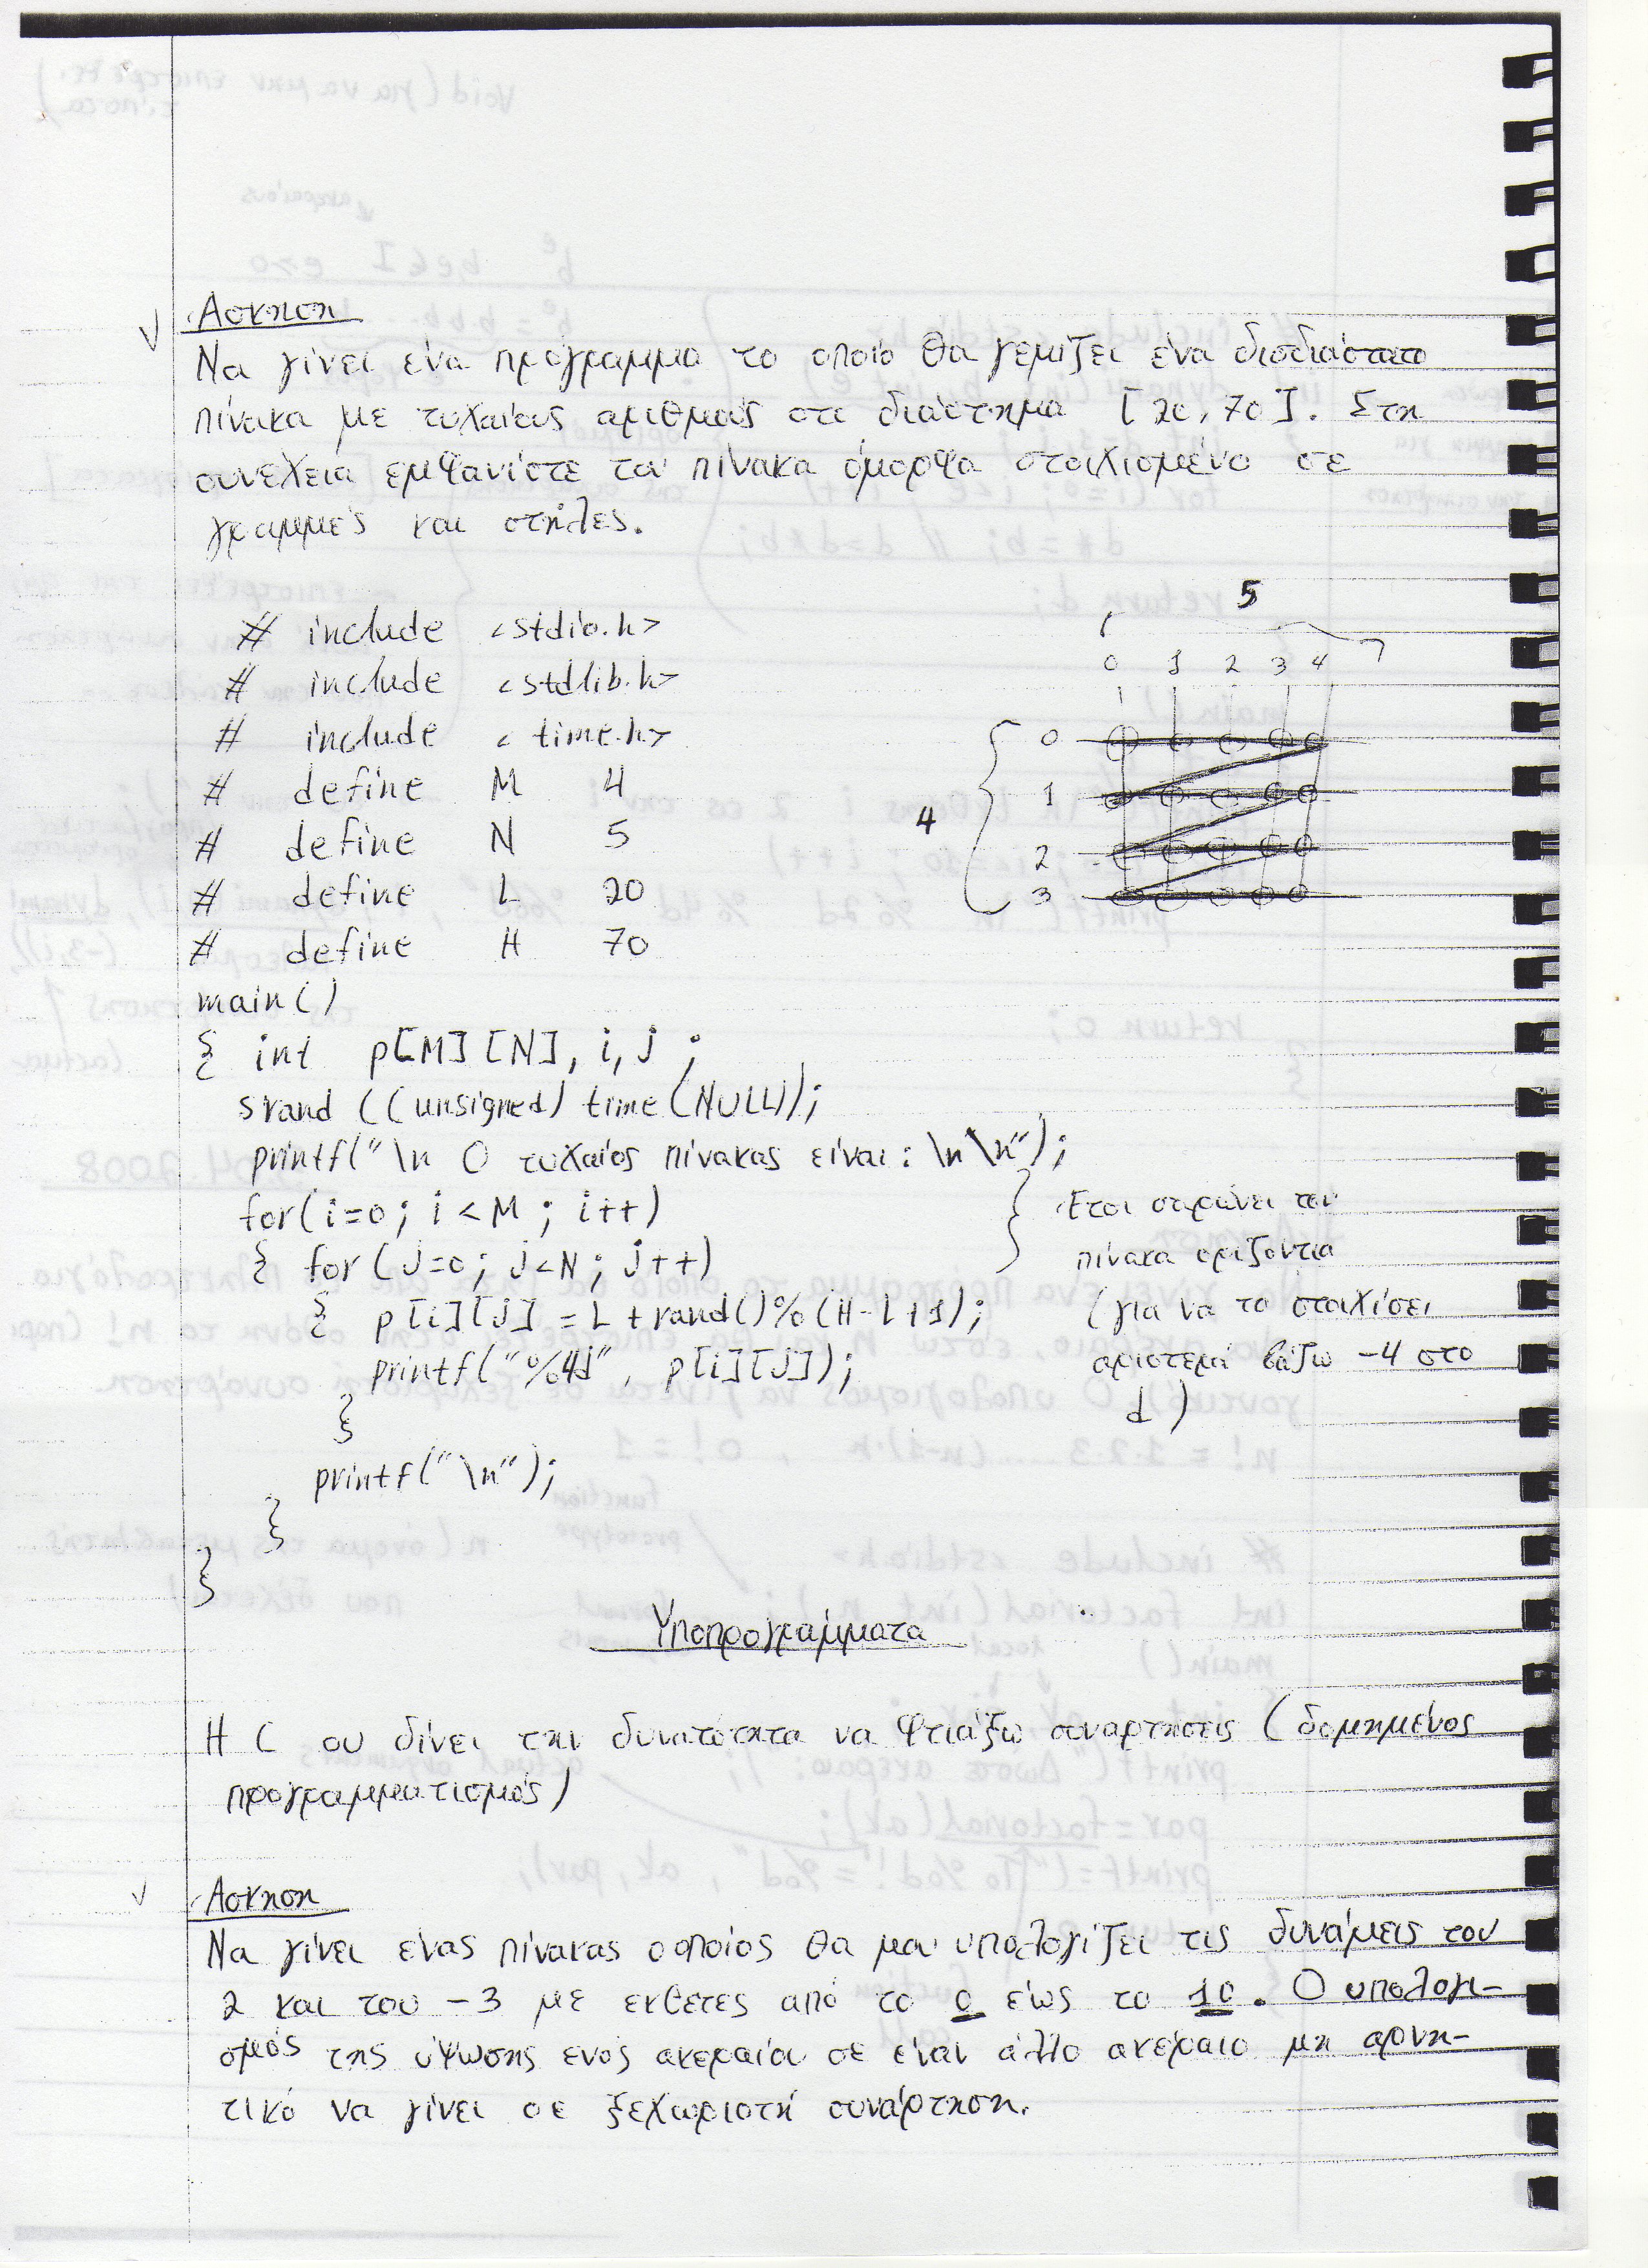 Άσκηση
Να γίνει ένα πρόγραμμα το οποίο θα γεμίζει ένα δισδιάστατο
πίνακα με τυχαίους αριθμούς στο διάστημα [20,70]. Στη
συνέχεια εμφανίστε τον πίνακα όμορφα στοιχισμένο σε
γραμμές και στήλες.
# include <stdio.h>
# include <stdlib.h>
# include <time.h>
# define M 4
# define N 5
# define L 20
# define H 70
5
0 1 2 3 4
0
1
4
2
3
main()
{ int p[M][N], i, j ;
srand ((unsigned) time(NULL));
printf("\n Ο τυχαίος πίνακας είναι: \n\n");
for(i=0; i<M ; i++)
{ for(j=0; j<N; j++)
{ p[i][j] = L+rand()%(H-L+1);
printf("%4d", p[i][j]);
}
printf("\n");
}
}
} Έτσι σαρώνει τον
πίνακα οριζόντια
(για να το στοιχίσει
αριστερά βάζω -4 στο
d)
Υποπρογράμματα
Η C ου δίνει την δυνατότητα να φτιάξω συναρτήσεις (δομημένος
προγραμματισμός)
Άσκηση
Να γίνει ένας πίνακας ο οποίος θα μου υπολογίζει τις δυνάμεις του
2 και του -3 με εκθέτες από το 0 έως το 10. Ο υπολογι-
σμός της ύψωσης ενός ακεραίου σε έναν άλλο ακέραιο μη αρνη-
τικό να γίνει σε ξεχωριστή συνάρτηση.